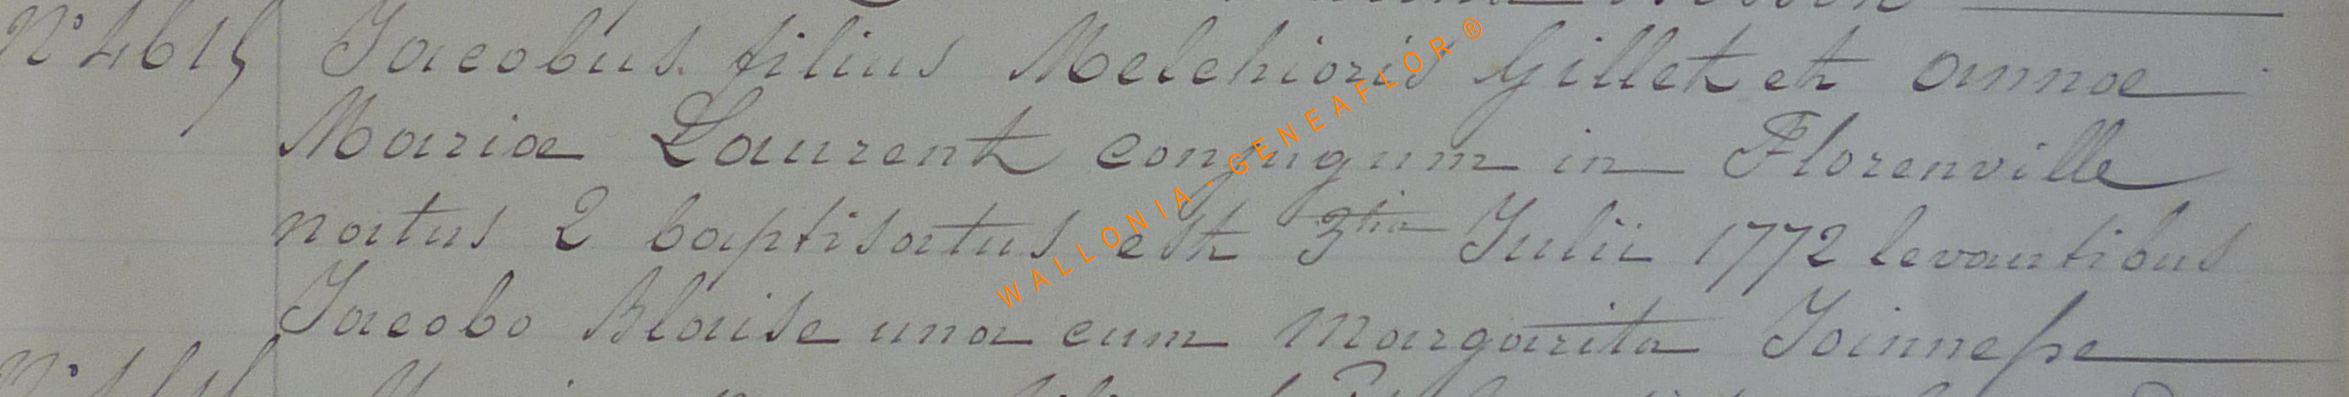 N° 4615 Jacobus filius Melchioris Gillet et annae
Mariae Laurent conjugum in Florenville
natus 2 baptisatus est 3tia Julii 1772 levantibus
Jacobo Blaise una cum Margarita
WALLONIA - GENEAFLOR®